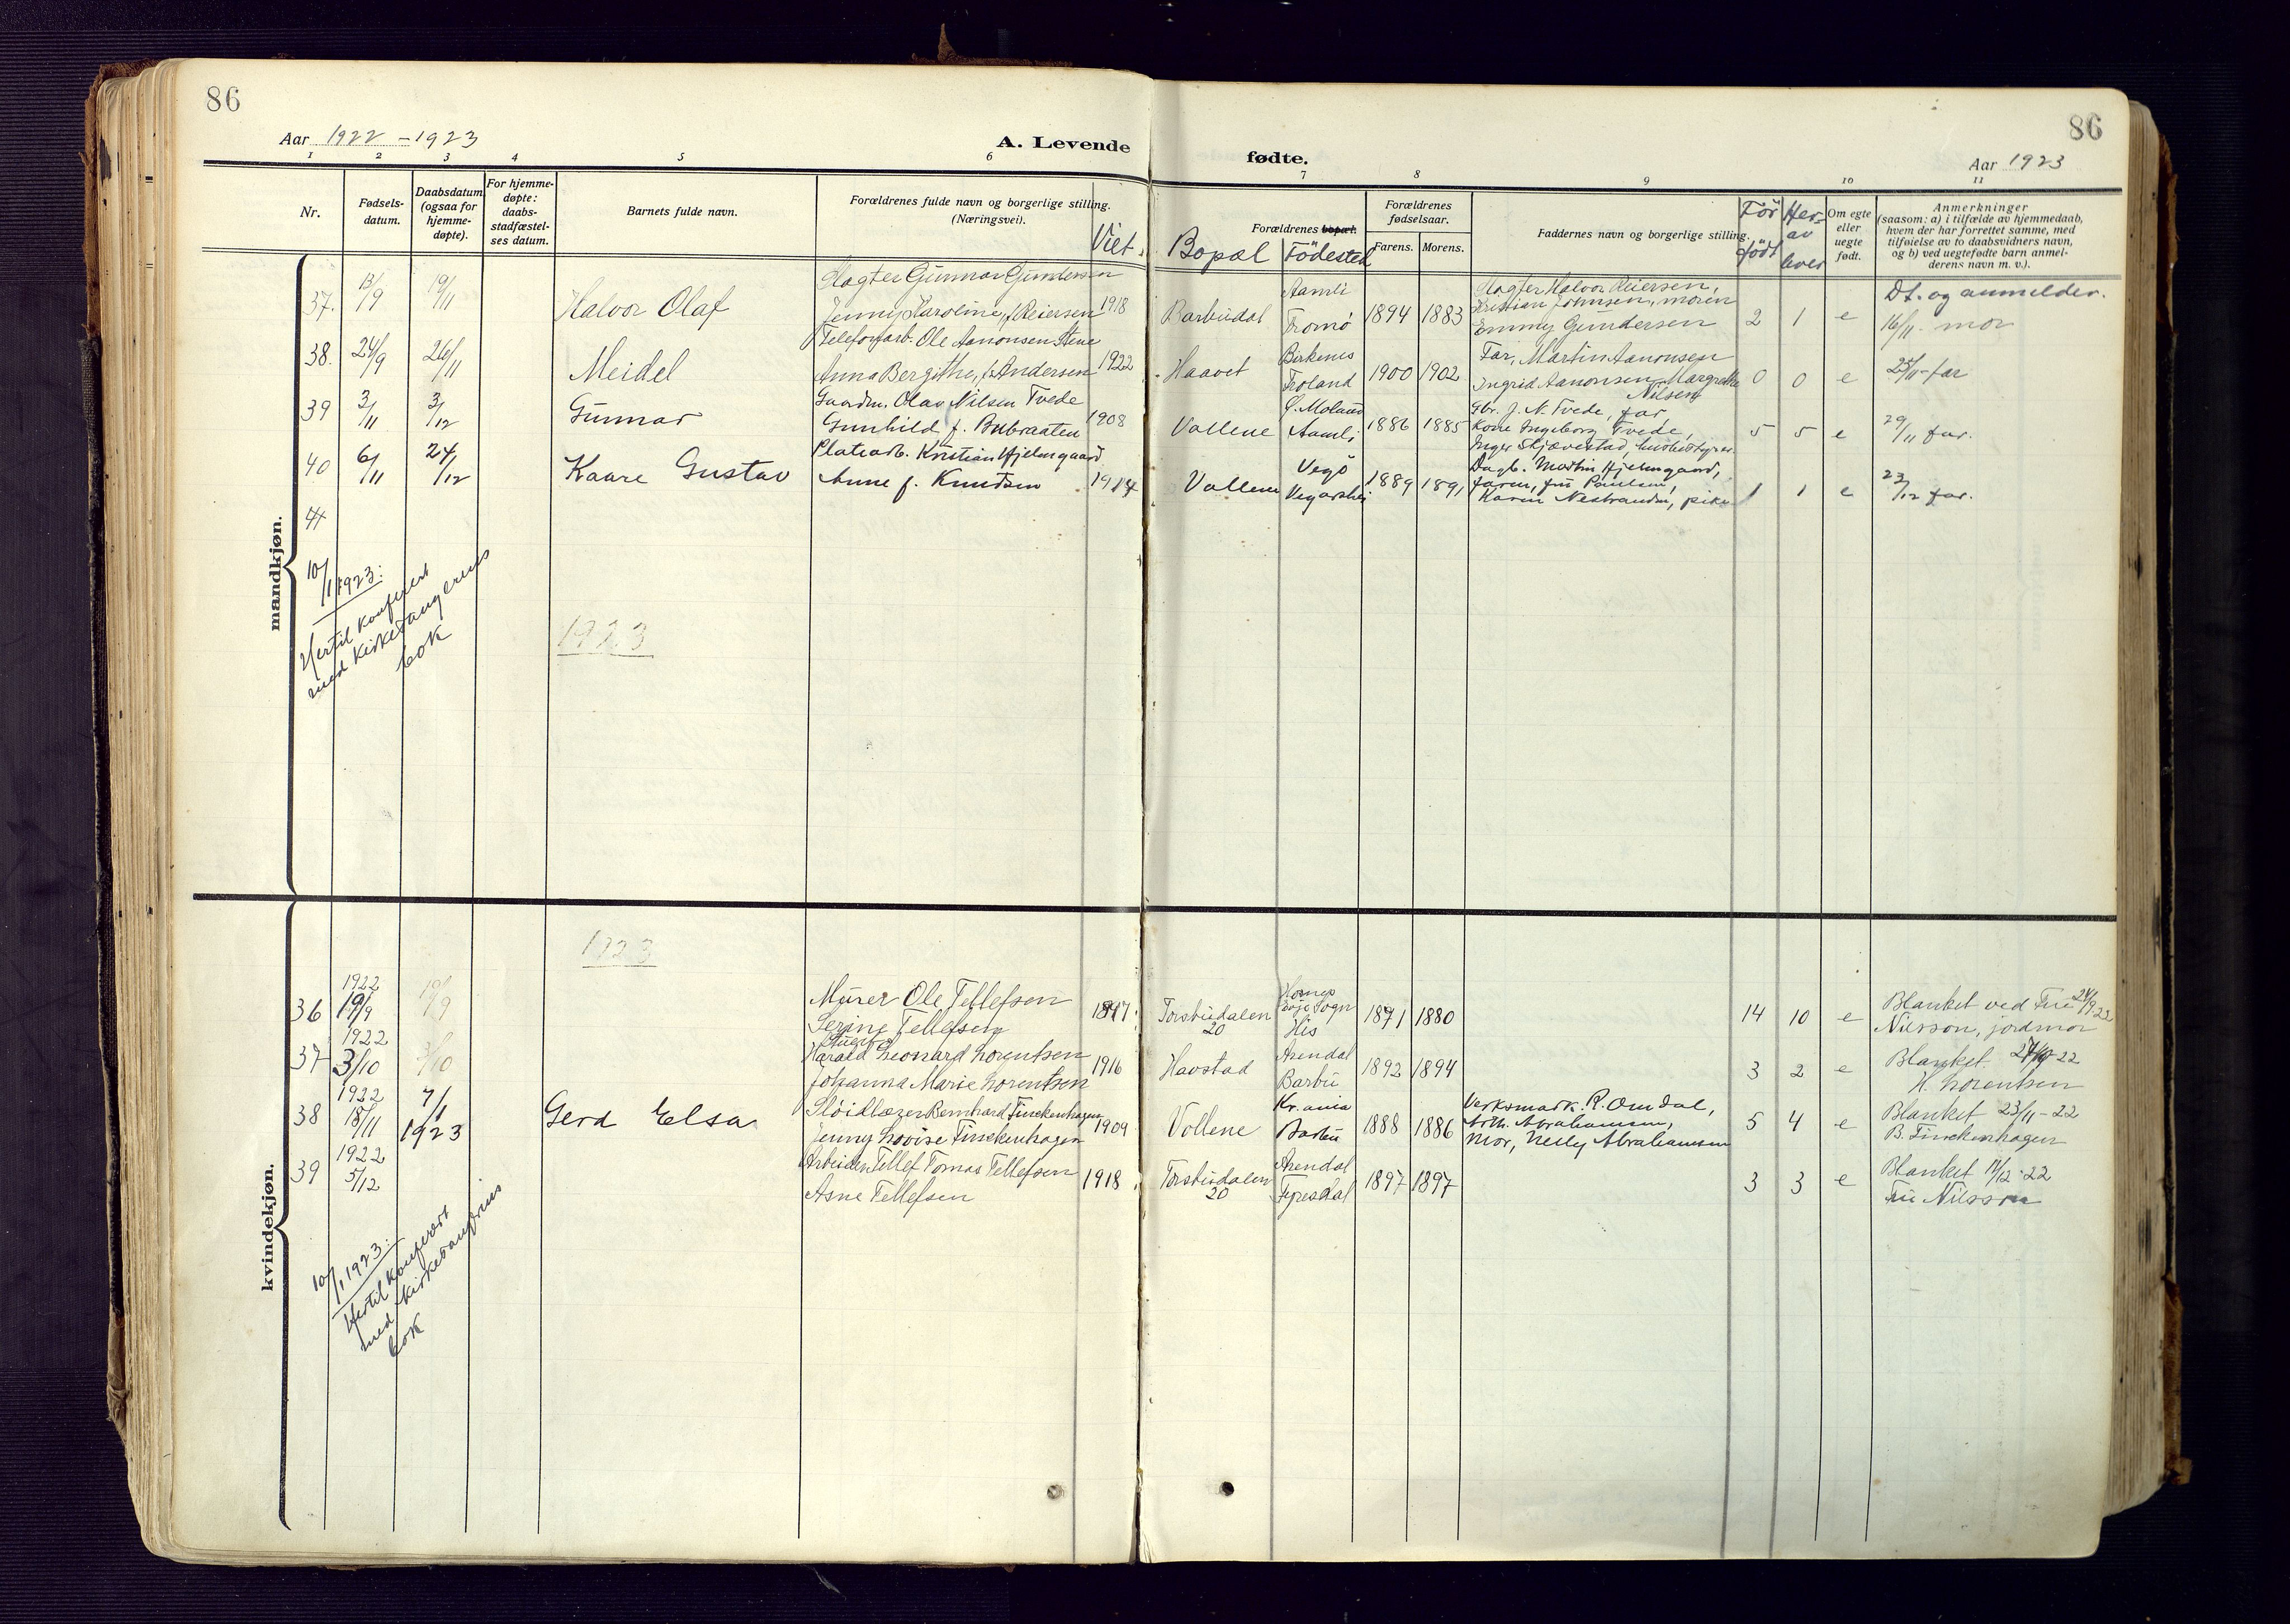 86
86
Aar 1922 - 1923
A. Levende
fødte.
Aar 1923
1 2 3 4 5 6 7 8 9 10 11
Nr.
Fødsels-
datum.
Daabsdatum
(ogsaa for
hjemme-
døpte).
For hjemme-
døpte:
daabs-
stadfæstel-
ses datum.
Barnets fulde navn.
Forældrenes fulde navn og borgerlige stilling.
(Næringsvei).
Viet.
Forældrenes bopæl.
Bopæl Födested
Forældrenes
fødselsaar.
Farens. Morens.
Faddernes navn og borgerlige stilling.
För
født
Her-
av
lever
Om egte
eller
uegte
født.
Anmerkninger
(saasom: a) i tilfælde av hjemmedaab,
hvem der har forrettet samme, med
tilføielse av to daabsvidners navn,
og b) ved uegtefødte barn anmel-
derens navn m. v.).
mandkjøn.
37. 13/9 19/11 Halvor Olaf
Slagter Gunnar Gundersen
Jenny Karoline, f. Reiersen 1918
Barbudal
Aamli
Tromö
1894 1883
Slagter Halvor Reiersen,
Kristian Johnsen, moren
Emmy Gundersen
2 1 e
Df. og anmelder.
16/11. mor
38. 24/9 26/11 Meidel
Telefonarb. Ole Aanonsen Stene
Anna Bergithe, f. Andersen 1922
Haavet
Birkenes
Froland
1900 1902
Far, Martin Aanonsen
Ingrid Aanonsen, Margrethe
Nilsen
0 0 e
25/11 far
39 3/11 3/12 Gunnar
Gaardm. Olav Nilsen Tvede
Gunhild f. Bubraaten 1908
Vollene
Ö. Moland
Aamli
1886 1885
Gbr. J. N. Tvede, far,
Kone Ingeborg Tvede,
Inger Skjævestad, husbestyrer.
5 5 e
29/11 far.
40 6/11 24/12 Kaare Gustav
Platearb. Kristian Hjelmgaard
Anne f. Knudsen 1914
Vollene
Vegö
Vegarshei
1889 1891
Dagb. Martin Hjelmgaard,
faren, fru Paulsen,
Karen Nesbrauden, pike
1 1 e
23/12 far.
41
10/1 1923:
Hertil konferert
med kirkesangerens
bok
1923
kvindekjøn.
1923
36 1922
19/9 19/9
Murer Ole Tellefsen
Serine Tellefsen
1897
Torsbudalen
20
His
1871 1880
14 10 e
Blanket ved Fru 24/9 22
Nilsson, jordmor
37 1922
3/10 3/10
Harald Leonard Lorentsen
Johanna Marie Lorentsen
1916
Havstad
Arendal
Barbu
1892 1894
3 2 e
Blanket 27/10-22
H. Lorentsen
38 1922
18/11 7/1
1923
Gerd Elsa
Slöidlærer Bernhard Finckenhagen
Jenny Lovise Finckenhagen
1909
Vollene
Kr.ania
Barbu
1888 1886
Verksmark. R. Omdal,
Arth. Abrahamsen,
Mor, Nelly Abrahamsen
5 4 e
Blanket 23/11-22
B. Finckenhagen
39 1922
5/12
Arbeider Tellef Tomas Tellefsen
Asne Tellefsen
1918
Torsbudalen
20
Arendal
Fyresdal
1897 1897
3 3 e
Blanket 11/12-22
Fru Nilsson
10/1 1923:
Hertil konferert
med kirkesangerens
bok